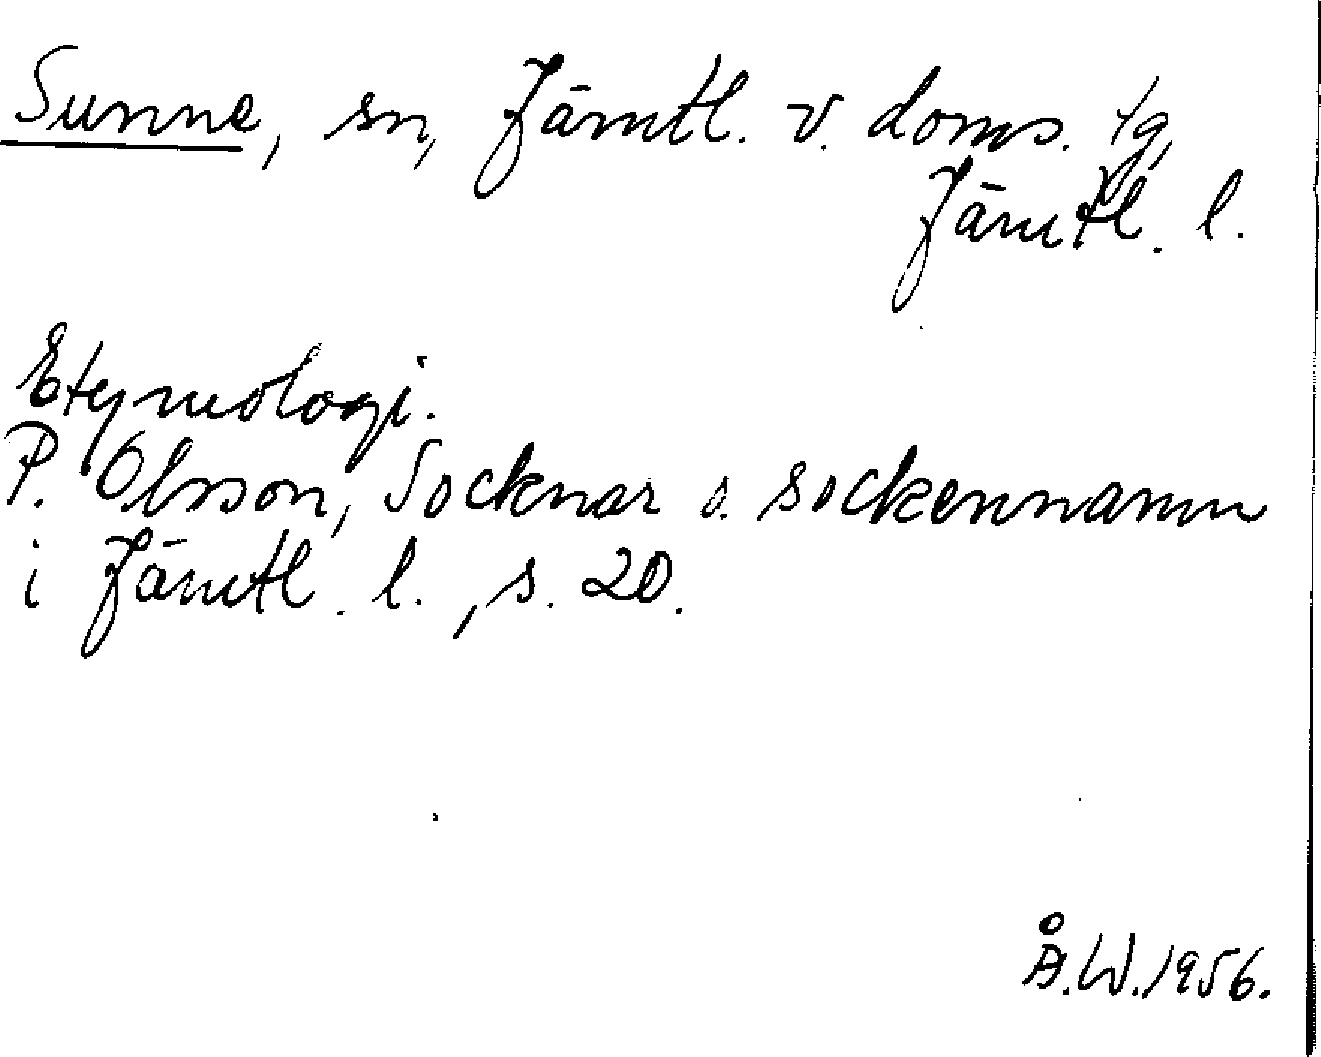 Sunne, sn, Jämtl. v. doms. tg,
Jämtl. l.
Etymologi.
P. Olsson, Socknar o. sockennamn
i Jämtl. l., s. 20.
Å.W.1956.